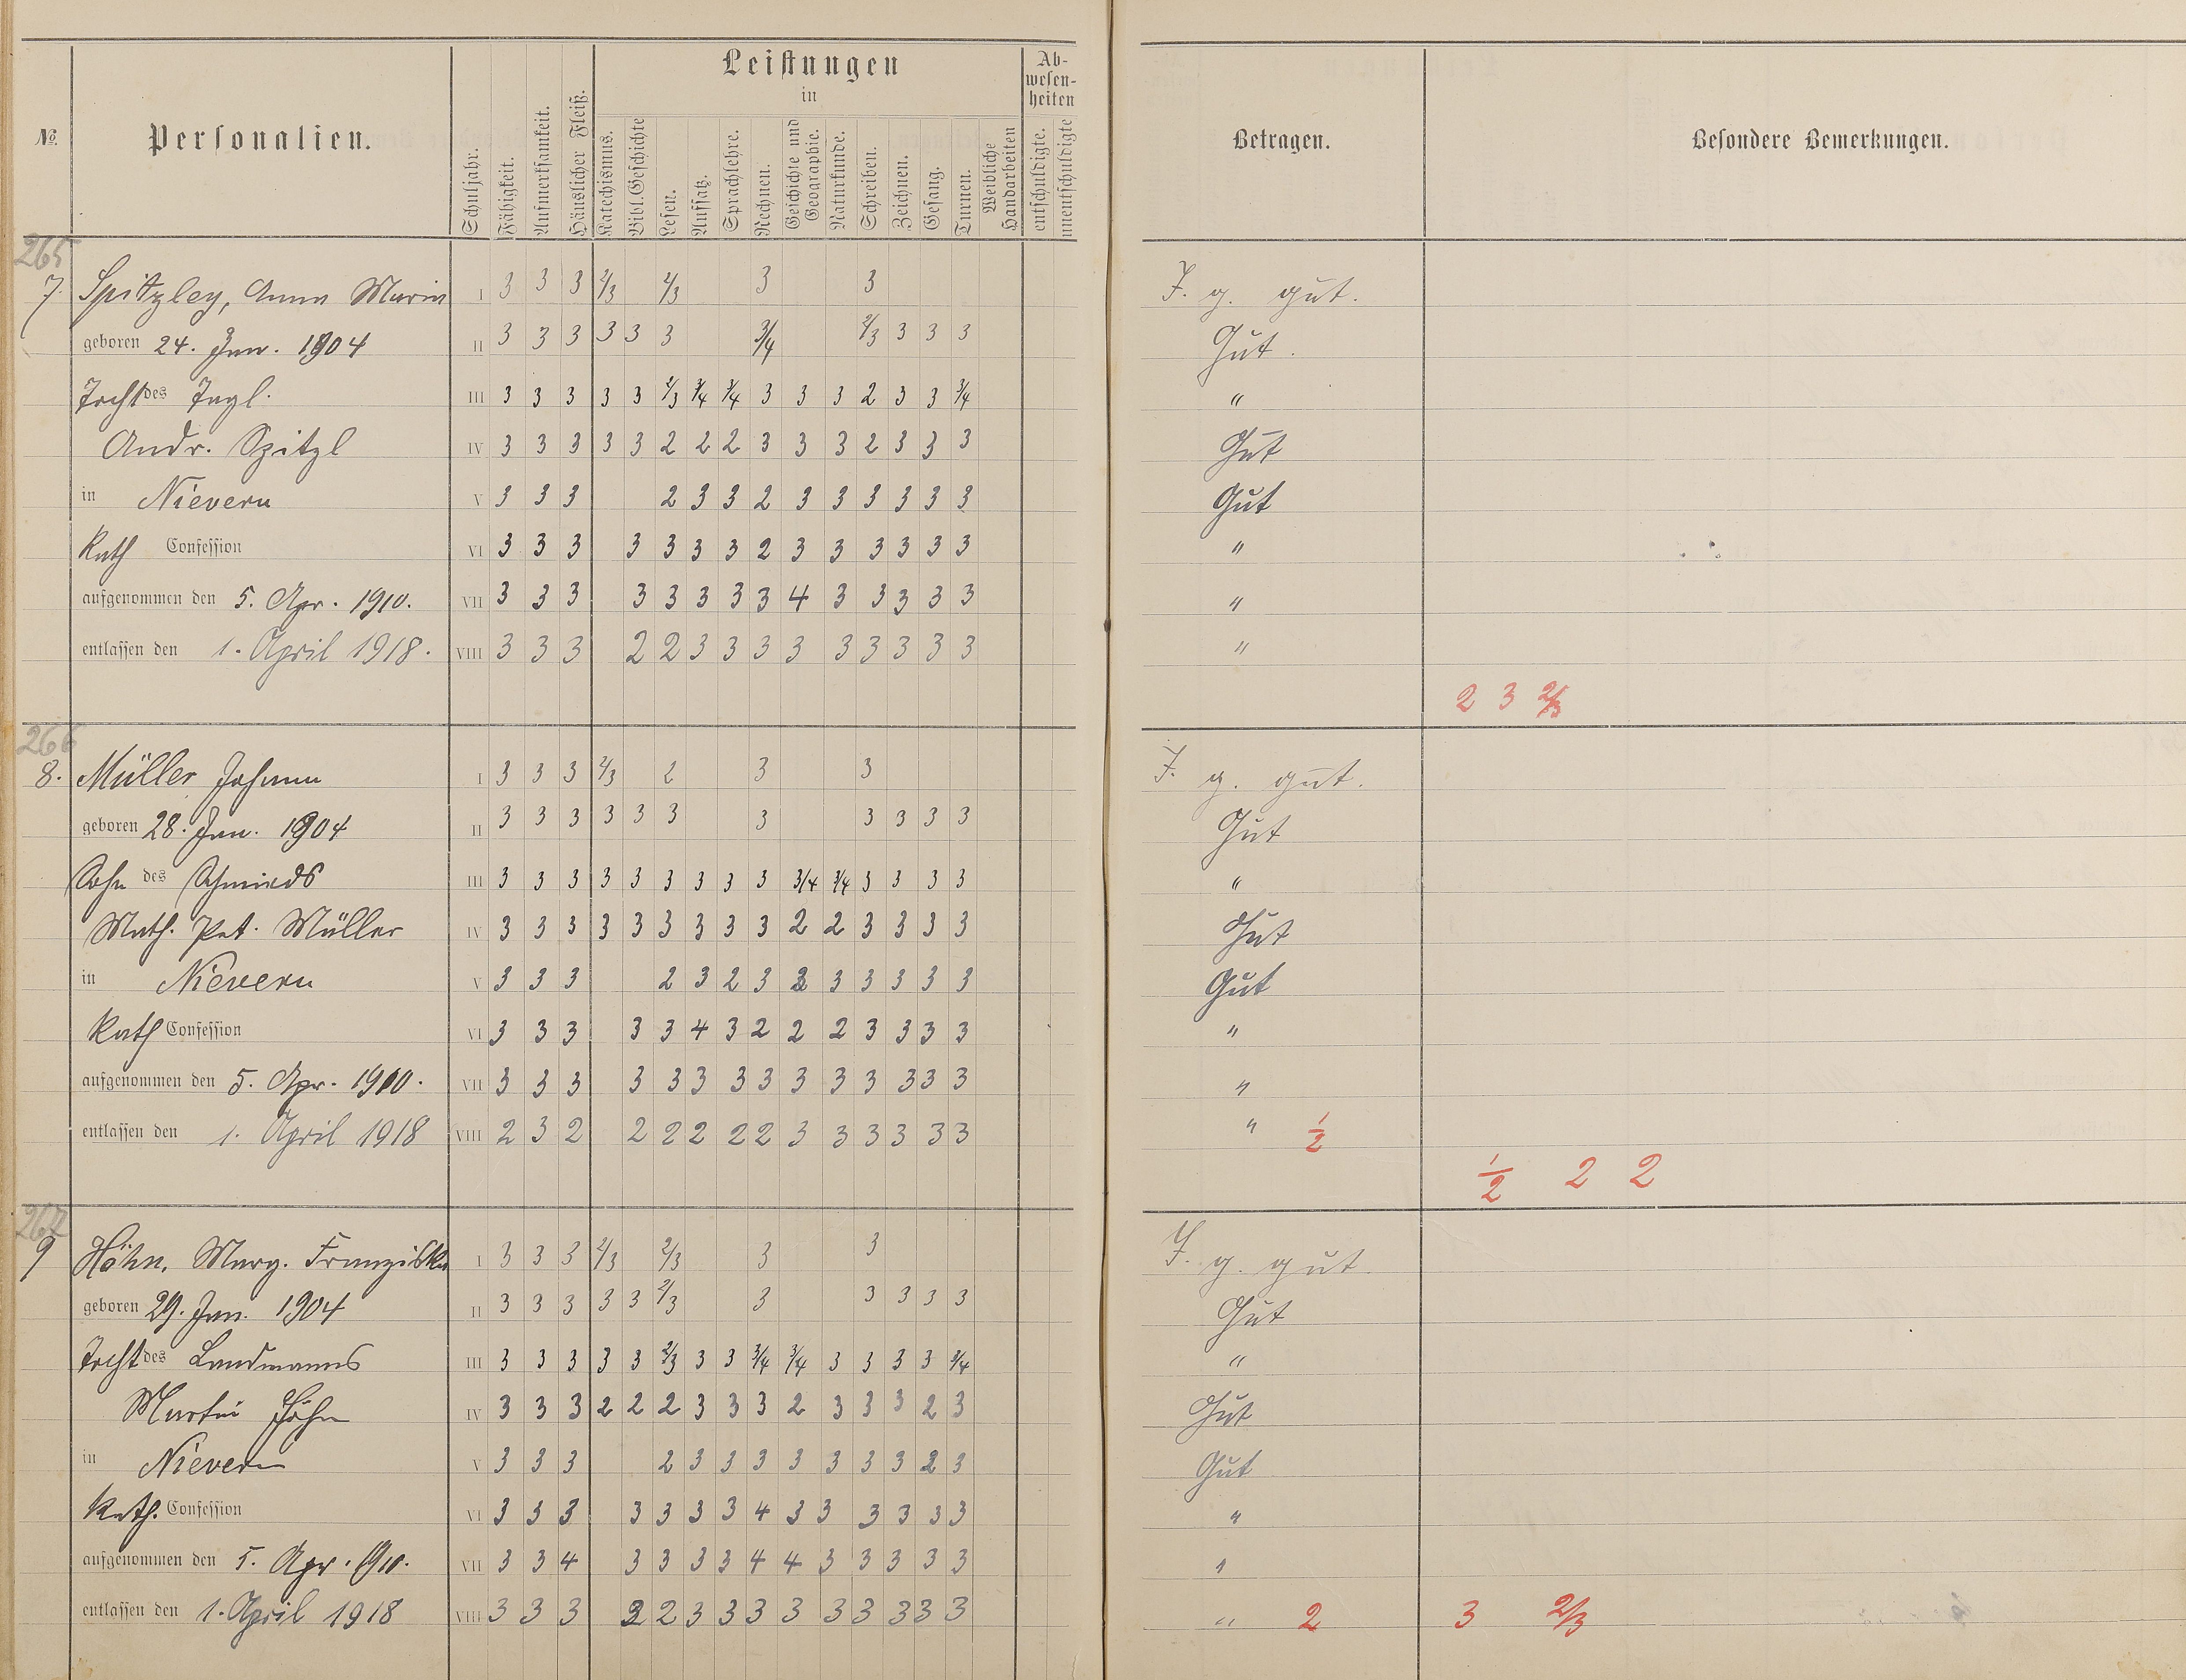 Leistungen
in
Ab-
wesen-
heiten
№
Personalien.
Schuljahr.
Fähigkeit.
Aufmerksamkeit.
Häuslicher Fleiß.
Katechismus.
Bibl. Geschichte
Lesen.
Aufsatz.
Sprachlehre.
Rechnen.
Geschichte und
Geographie.
Naturkunde.
Schreiben.
Zeichnen.
Gesang.
Turnen.
Weibliche
Handarbeiten
entschuldigte.
unentschuldigte
Betragen.
Besondere Bemerkungen.
265
7. Spitzley, Anna Maria I 3 3 3 2/3 2/3 3 3 I. g. gut.
geboren 24. Jan. 1904 II 3 3 3 3 3 3 3/4 2/3 3 3 3 Gut.
Tocht des Tagl. III 3 3 3 3 3 2/3 3/4 3/4 3 3 3 2 3 3 3/4 "
Andr. Spitzl IV 3 3 3 3 3 2 2 2 3 3 3 2 3 3 3 Gut
in Nievern V 3 3 3 2 3 3 2 3 3 3 3 3 3 Gut
Kath Confession VI 3 3 3 3 3 3 3 2 3 3 3 3 3 3 "
aufgenommen den 5. Apr. 1910. VII 3 3 3 3 3 3 3 3 4 3 3 3 3 3 "
entlassen den 1. April 1918. VIII 3 3 3 2 2 3 3 3 3 3 3 3 3 3 "
2 3 2/3
266
8. Müller Johann I 3 3 3 2/3 2 3 3 I. g. gut.
geboren 28. Jan. 1904 II 3 3 3 3 3 3 3 3 3 3 3 Gut
Sohn des Schmieds III 3 3 3 3 3 3 3 3 3 3/4 3/4 3 3 3 3 "
Math. Pet. Müller IV 3 3 3 3 3 3 3 3 3 2 2 3 3 3 3 Gut
in Nievern V 3 3 3 2 3 2 3 3 3 3 3 3 Gut
Kath Confession VI 3 3 3 3 3 4 3 2 2 2 3 3 3 3 "
aufgenommen den 5. Apr. 1910. VII 3 3 3 3 3 3 3 3 3 3 3 3 3 3 "
entlassen den 1. April 1918 VIII 2 3 2 2 2 2 2 2 3 3 3 3 3 3 " 1/2
1/2 2 2
267
9 Höhn, Marg. Franziska I 3 3 3 2/3 2/3 3 3 I. g. gut
geboren 29. Jan. 1904 II 3 3 3 3 3 2/3 3 3 3 3 3 Gut
Tocht des Landmanns III 3 3 3 3 3 2/3 3 3 3/4 3/4 3 3 3 3 3/4 "
Martin Höhn IV 3 3 3 2 2 2 3 3 3 2 3 3 3 2 3 Gut
in Nievern V 3 3 3 2 3 3 3 3 3 3 3 2 3 Gut
Kath. Confession VI 3 3 3 3 3 3 3 4 3 3 3 3 3 3 "
aufgenommen den 5. Apr. 1910. VII 3 3 4 3 3 3 3 4 4 3 3 3 3 3 "
entlassen den 1. April 1918 VIII 3 3 3 2 3 3 3 3 3 3 3 3 3 " 2 3 2/3